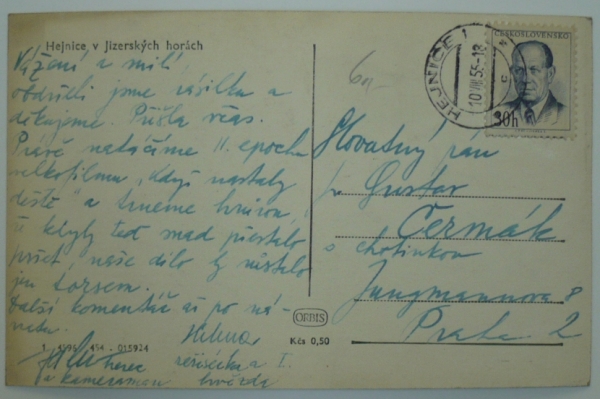 Hejnice v Jizerských horách
Vážení a milí
obdrželi jsme zásilku a
děkujeme. Přišla včas.
Právě natáčíme II. epochu
velkofilmu „Když nastaly
deště" a trneme hrůzou,
že kdyby teď snad přestalo
pršet, naše dílo by zůstalo
jen torsem.
Další komentář až po ná-
vratu.
Helena
režisérka a I.
hvězda
herec
a kameraman
1 4595 454 - 015924
ORBIS
Kčs 0,50
HEJNICE 1
10.VIII.55-18
ČESKOSLOVENSKO
30h
6,-
Slovutný pan
Gustav
Čermák
s chotinkou
Jungmannova 8
Praha 2